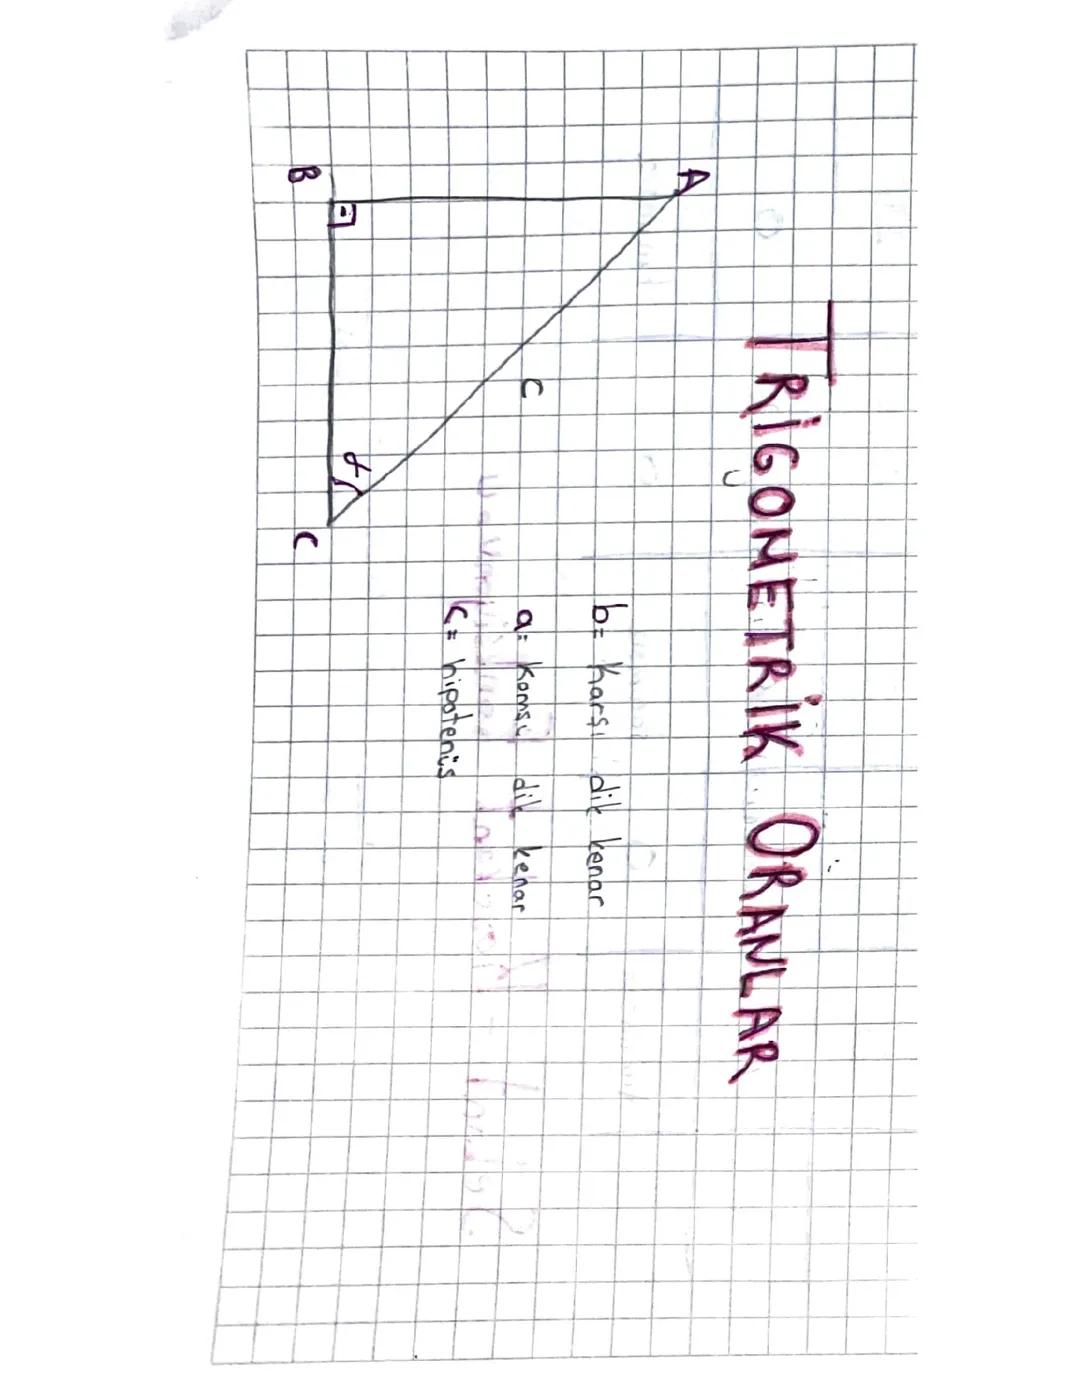 TRİGONOMETRİK ORANLAR
A
c
B
α
C
b= Karşı dik kenar
a= Komşu dik kenar
c= hipotenüs